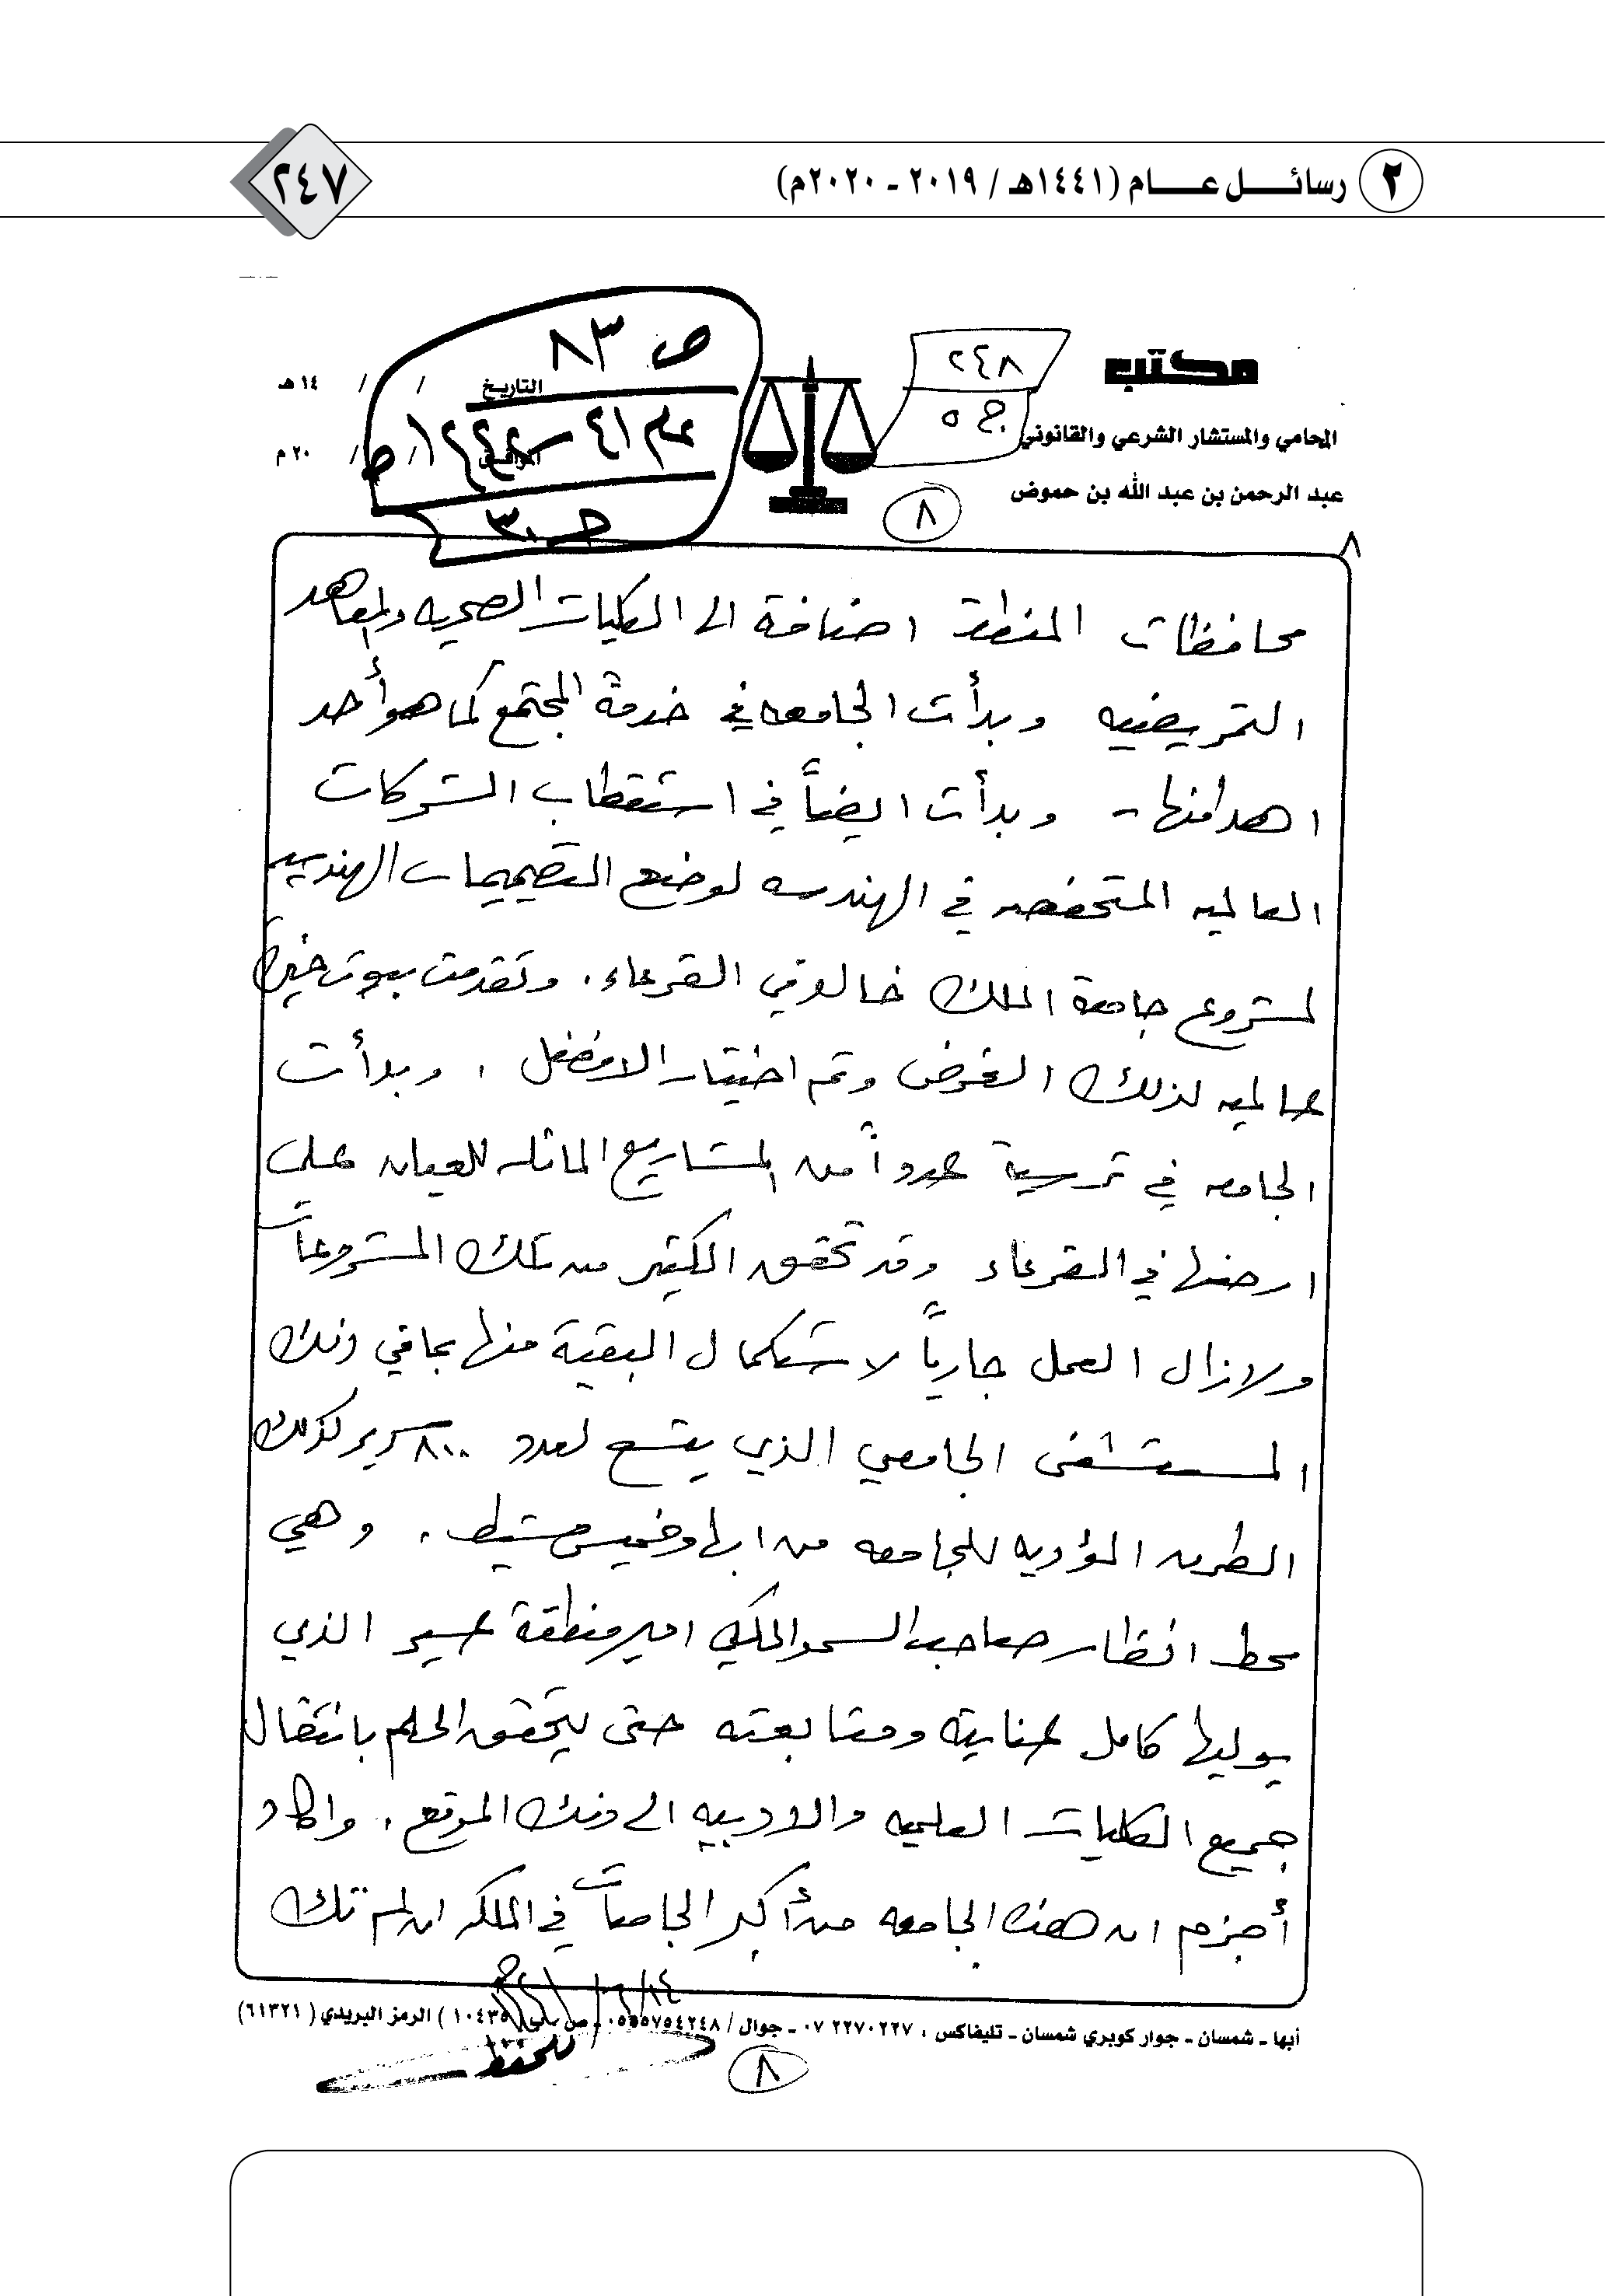 ٢ رسائل عام (١٤٤١هـ / ٢٠١٩ - ٢٠٢٠م)
٢٤٧
مكتب
المحامي والمستشار الشرعي والقانوني
عبد الرحمن بن عبد الله بن حموض
٢٤٨
ج ٥
٨
ص ٨٣
التاريخ / / ١٤ هـ
عام ٤١ - ١٤٤٢ هـ
الموافق / / ٢٠ م
جـ ٣٠
٨
محافظات المنطقة اضافة الى الكليات الصحيه والمعاهد
التمريضيه وبدأت الجامعه في خدمة المجتمع كما هو أحد
اهدافها - وبدأت ايضاً في استقطاب الشركات
العالميه المتخصصه في الهندسه لوضع التصميمات الهندسيه
لمشروع جامعة الملك خالد في القرعاء . وتقدمت بيوت خبره
عالميه لذلك الغرض وتم اختيار الافضل . وبدأت
الجامعه في ترسية عدداً من المشاريع الماثله للعيان على
ارضها في القرعاء وقد تحقق الكثير من تلك المشروعات
ولازال العمل جارياً لاستكمال البقية منها بما في ذلك
المستشفى الجامعي الذي يتسع لعدد ٨٠٠ سرير كذلك
الطرق المؤديه للجامعه من ابها وخميس مشيط . وهي
محط انظار صاحب السمو الملكي امير منطقة عسير الذي
يوليها كامل عنايته ومتابعته حتى يتحقق الحلم بانتقال
جميع الكليات العلميه والادبيه الى ذلك الموقع . واكاد
أجزم ان هذه الجامعه من أكبر الجامعات في المملكه ان لم تك
أبها - شمسان - جوار كوبري شمسان - تليفاكس : ٢٢٧٠٢٢٧ ٠٧ - جوال / ٠٥٥٥٧٥٤٢٤٨ - ص . ب ( ١٠٤٣٥ ) الرمز البريدي ( ٦١٣٢١ )
للحفظ
٨